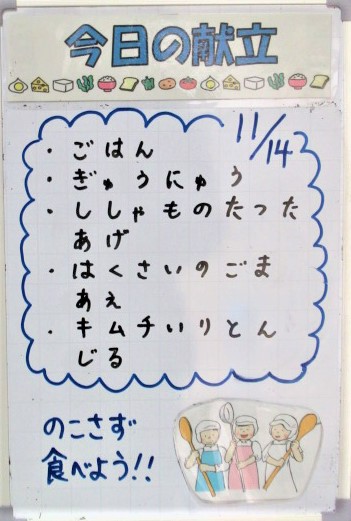 今日の献立
11/14
・ごはん
・ぎゅうにゅう
・ししゃものたつた
あげ
・はくさいのごま
あえ
・キムチいりとん
じる
のこさず
食べよう!!